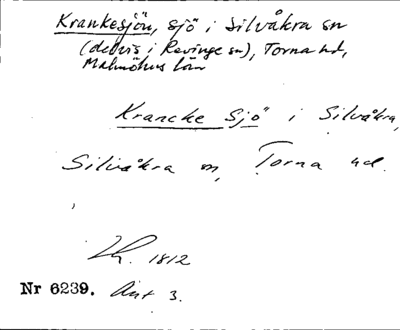 Krankesjön, sjö i Silvåkra sn
(delvis i Revinge sn), Torna hd,
Malmöhus län
Krancke Sjö i Silvåkra,
Silvåkra sn, Torna hd.
1812
Nr 6239. Ant 3.